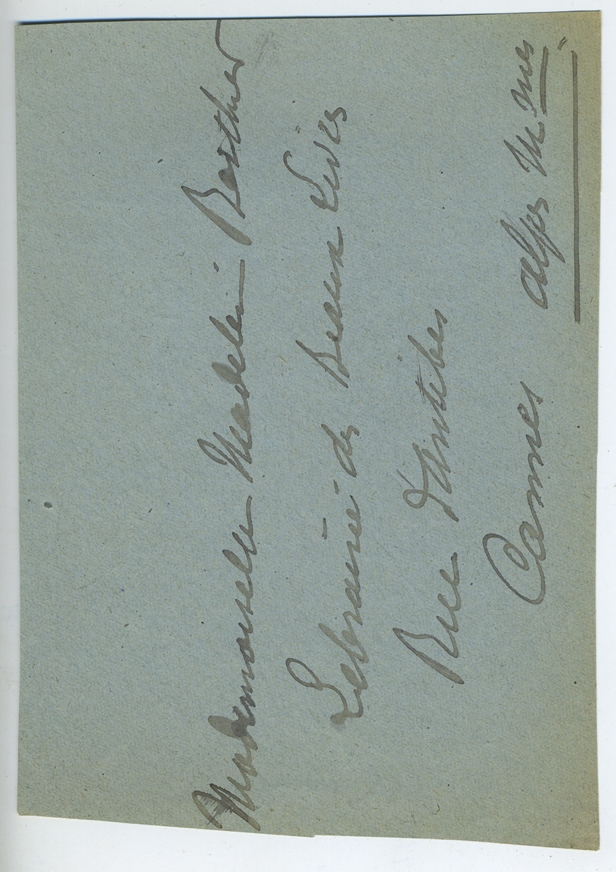 Mademoiselle Madeleine Berthier
Librairie des Beaux Livres
Rue d'Antibes
Cannes Alpes Mmes